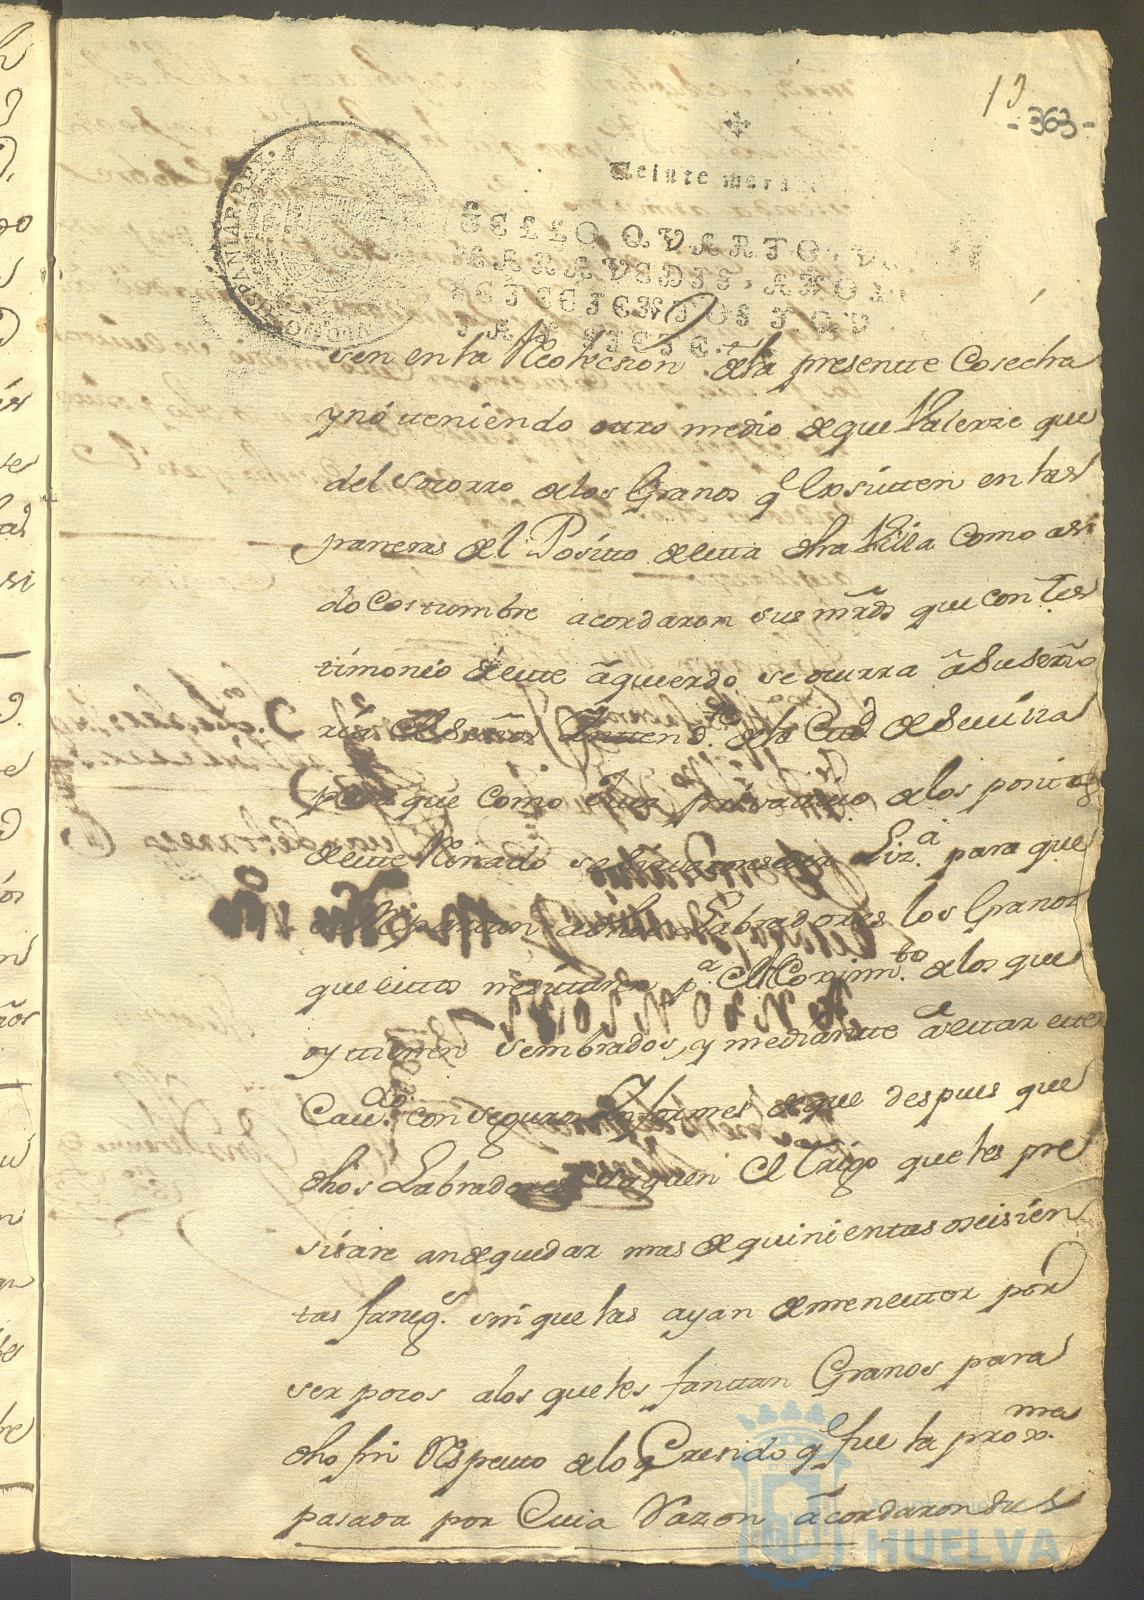 13
-363-
Veinte marav
HISPANIARUM REX
SELLO QVARTO, VE
MARAVEDIS, AÑO
SETECIENTOS Y QV
TA Y SIETE.
sen en la Recoleczion de la presente Cosecha
y no teniendo otro medio de que Valerze que
del Socorro de los Granos q.e Existten en las
paneras del Positto de esta dha Villa como asi
do Costtumbre acordaron sus mrds que con tes
timonio de este aquerdo se ocurra a Su señro
ria el señor Yntend.te de la Ciud de Sevilla
para que como Juez privativo de los positos
de este Reinado se sirva conseder Liz.a para que
se Repartan a dhos Labradores los Granos
que estos nesesitaren p.a el Coximt.to de los que
oy tienen sembrados, y mediantte a estar este
Cav.do con seguros Ynformes de que despues que
dhos Labradores saquen el Trigo que les pre
sisare an de quedar mas de quinientas o seisien
tas faneg.s sin que las ayan de menester por
ser pocos a los que les faltan Granos para
dho fin Respecto a lo Cresido q.e fue la prox.ma
pasada por Cuia Razon acordaron Su s
Ayuntamiento de
HUELVA